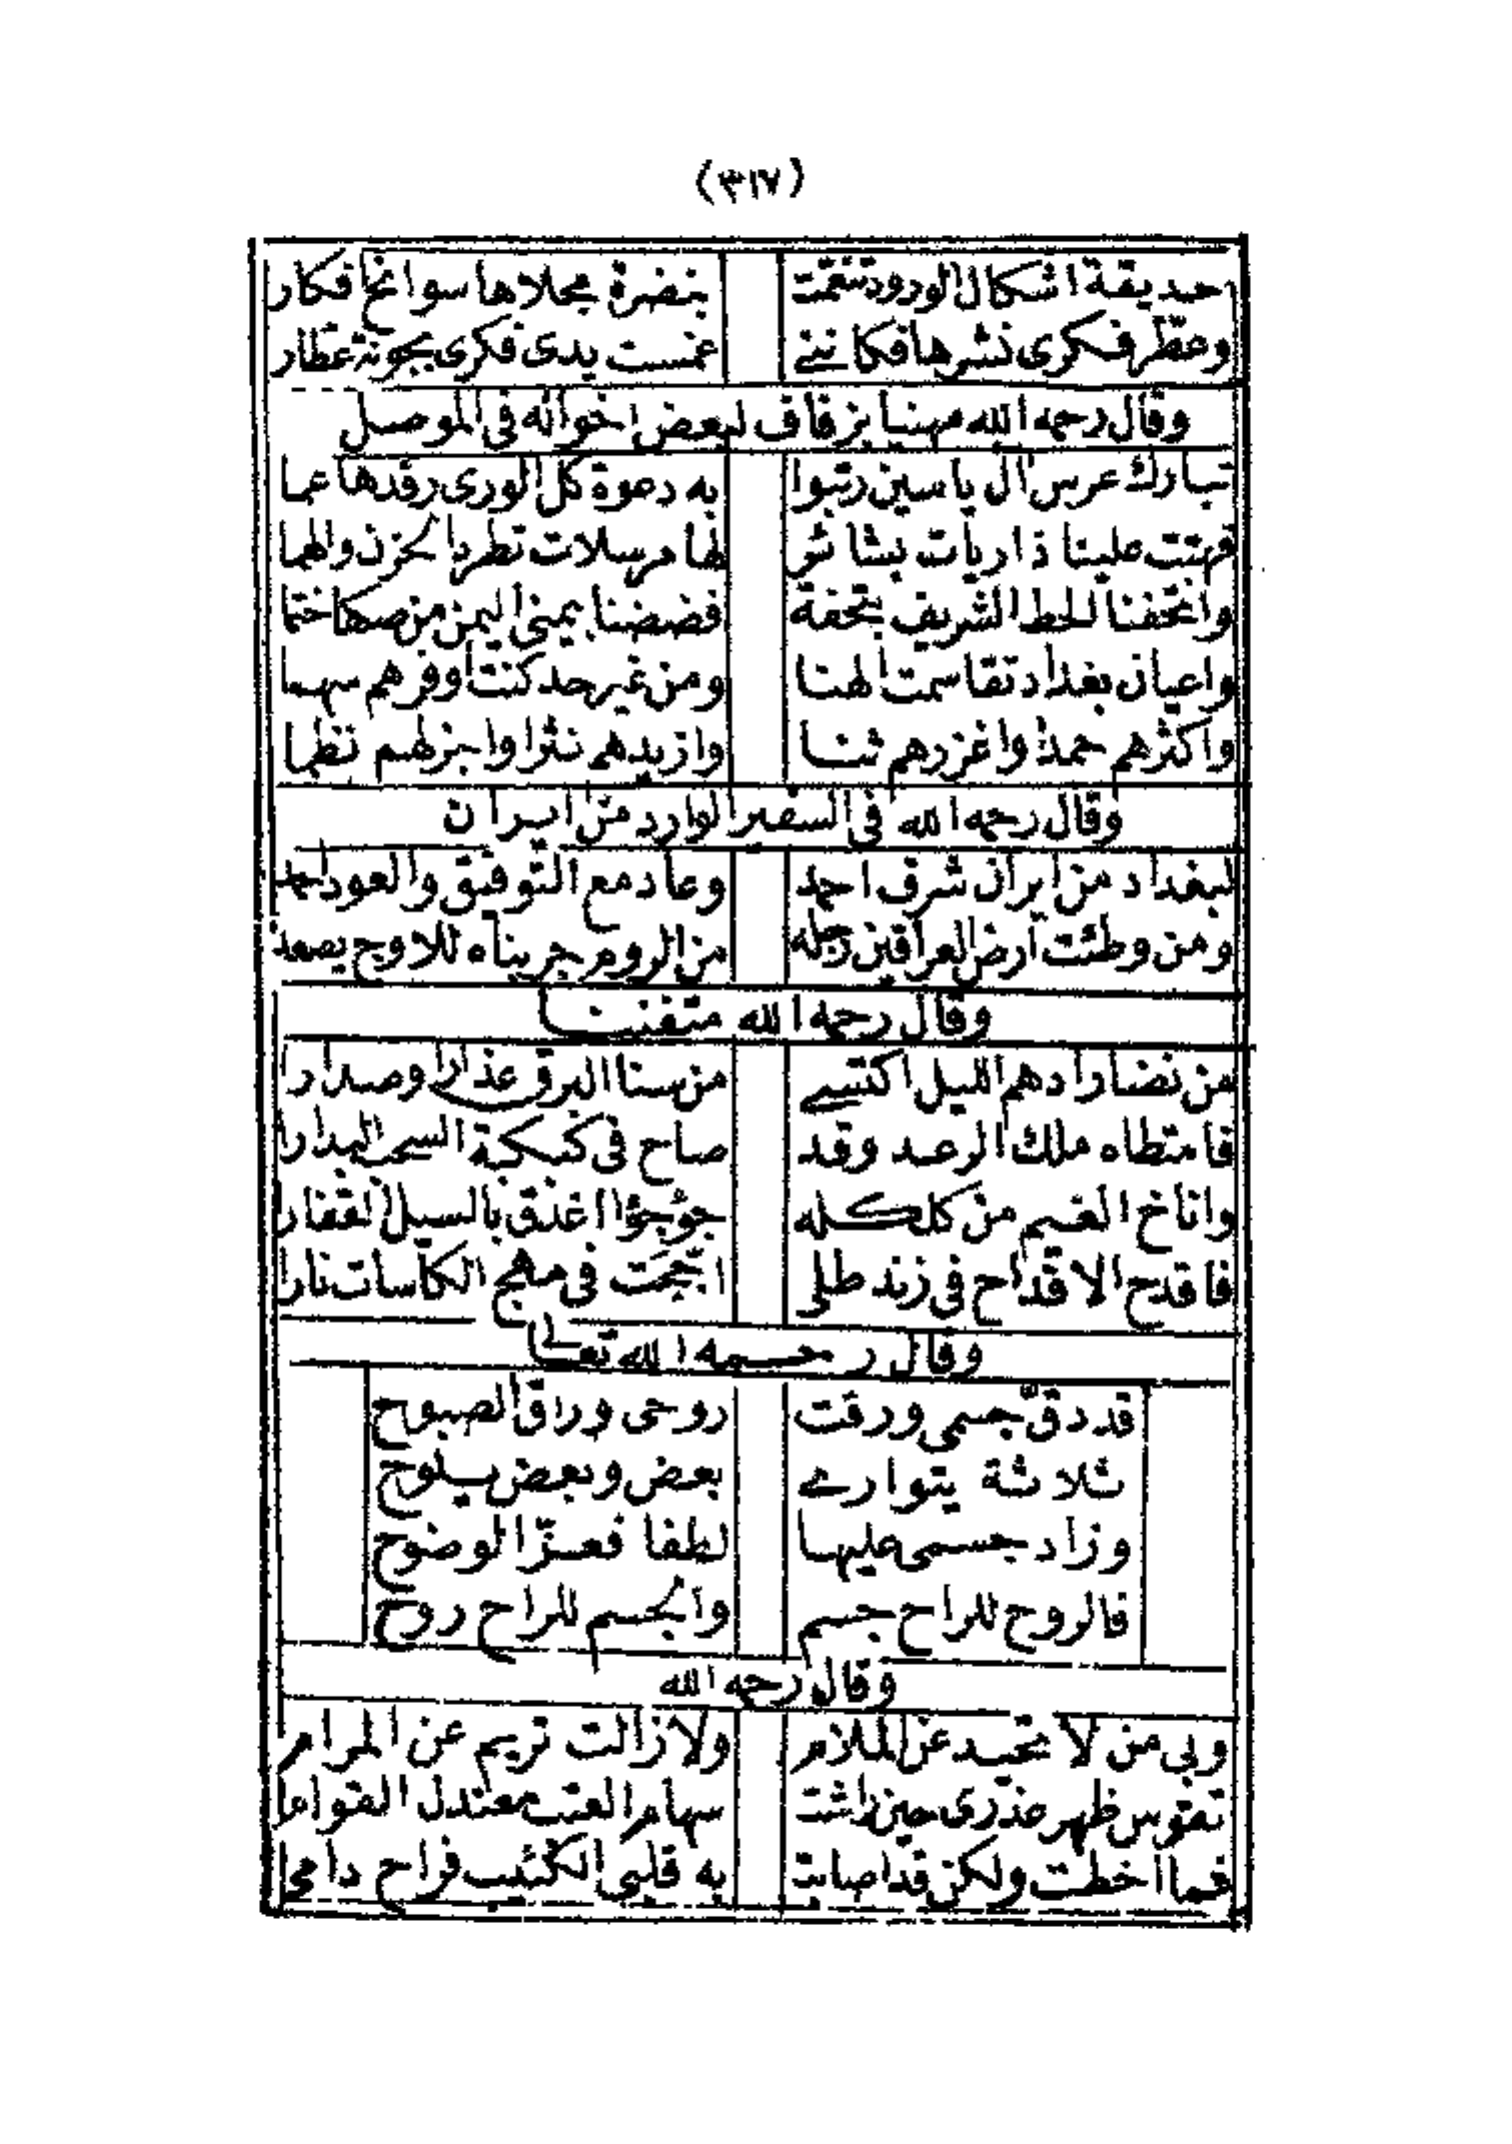 (٣١٧)
حديقة اشكال الورود تنمقت بنضرة مجلاها سوانح افكار
وعطّر فكرى نشرها فكاننى غمست يدى فكرى بجونة عطار
وقال رحمه الله مهنيا بزفاف لبعض اخوانه فى الموصل
تبارك عرس آل ياسين رتبوا به دعوة كل الورى رفدها عما
فهبت علينا ذاريات بشائر لها مرسلات تطرد الحزن والهما
واتحفنا الحظ الشريف بتحفة فضضنا بيمنى اليمن من صكها ختما
واعيان بغداد تقاسمت الهنا ومن غير حد كنت اوفرهم سهما
واكثرهم حمدا واغزرهم ثنا وازيدهم نثرا واجزلهم نظما
وقال رحمه الله فى السفير الوارد من ايران
لبغداد من ايران شرف احمد وعاد مع التوفيق والعود احمد
ومن وطئت ارض العراقين رجله من الروم جريناه للاوج يصعد
وقال رحمه الله متفننا
من نضار ادهم الليل اكتسى من سنا البرق عذارا وصدارا
فامتطاه ملك الرعد وقد صاح فى كبكبة السحب البدارا
واناخ الغيم من كلكله جؤجؤا اغرق بالسيل القفارا
فاقدح الاقداح فى زند طلى اججت فى مهج الكاسات نارا
وقال رحمه الله تعالى
قد دقّ جسمى ورقت روحى وراق الصبوح
ثلاثة يتوارى بعض وبعض يلوح
وزاد جسمى عليها لطفا فعزّ الوضوح
فالروح للراح جسم والجسم للراح روح
وقال رحمه الله
وبى من لا تحيد عن الملام ولا زالت تريم عن المرام
تقوس ظهر عذرى حين راشت سهام العتب معتدل القوام
فما اخطت ولكن قد اصابت به قلبى الكئيب فراح دامى